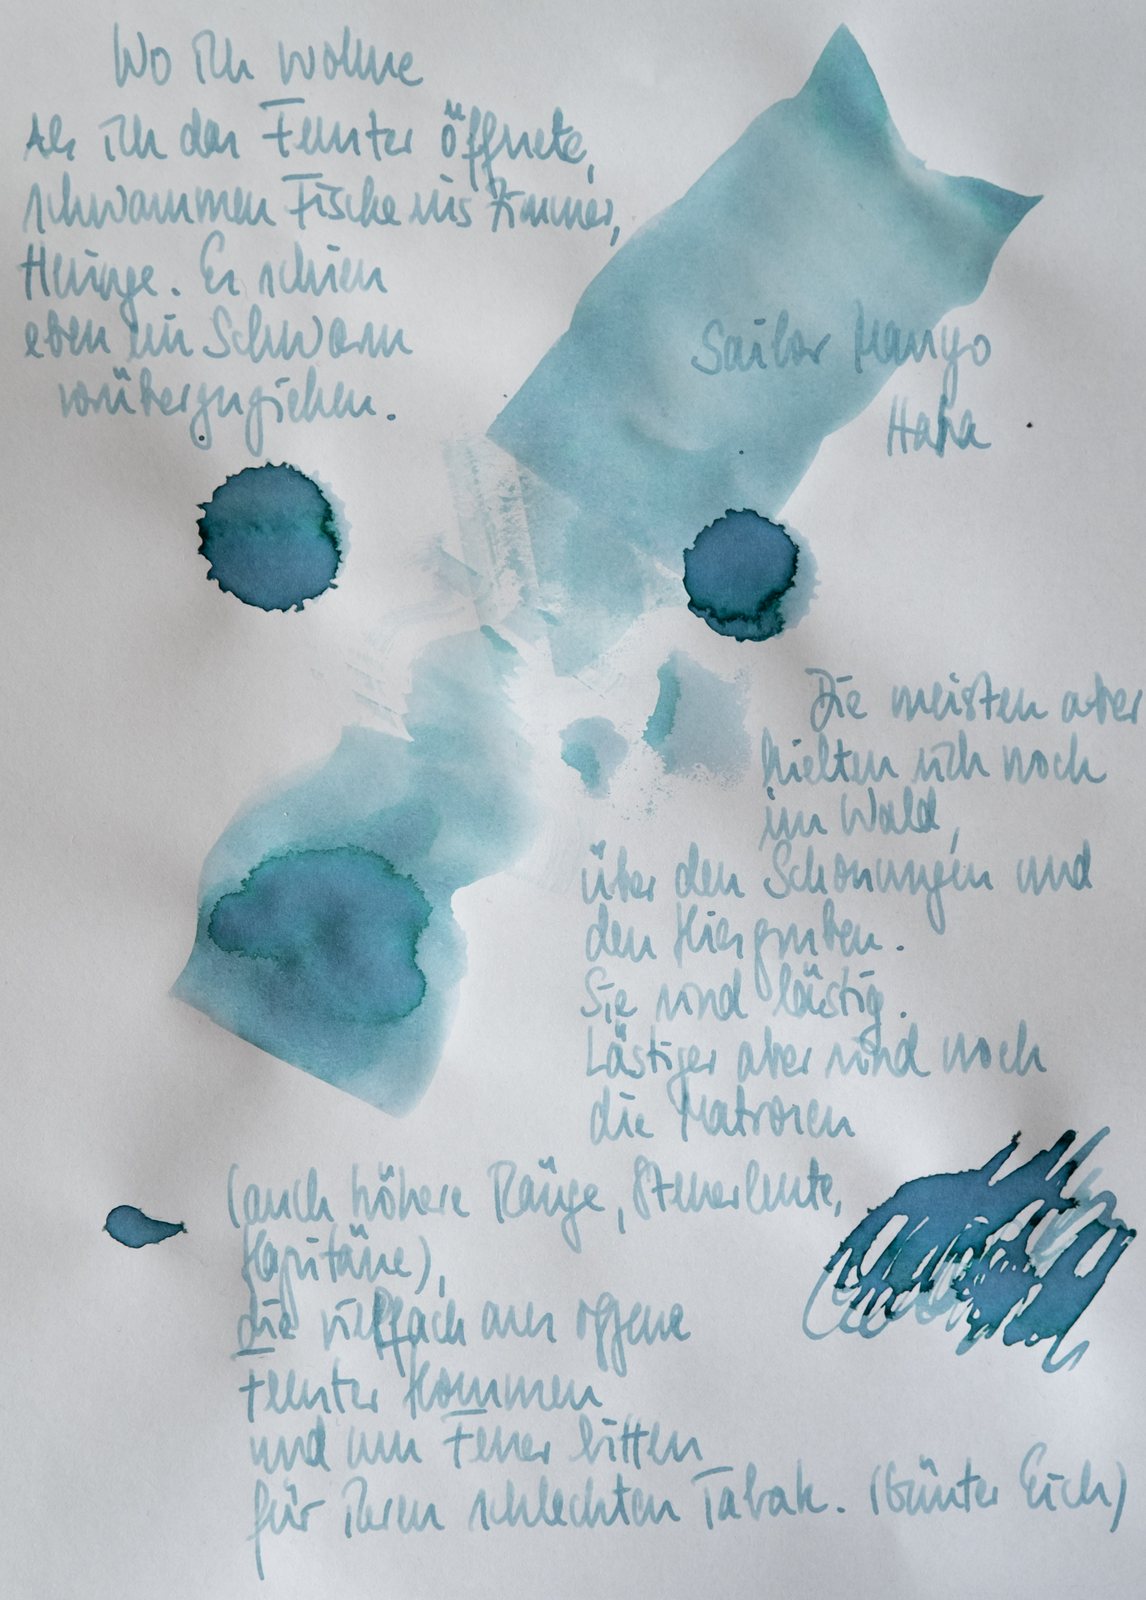 Wo ich wohne
Als ich das Fenster öffnete,
schwammen Fische ins Zimmer,
Heringe. Es schien
eben ein Schwarm
vorüberzuziehen.
Sailor Manyo
Haha
Die meisten aber
hielten sich noch
im Wald,
über den Schonungen und
den Kiesgruben.
Sie sind lästig.
Lästiger aber sind noch
die Matrosen
(auch höhere Ränge, Steuerleute,
Kapitäne),
die vielfach ans offene
Fenster kommen
und um Feuer bitten
für ihren schlechten Tabak. (Günter Eich)